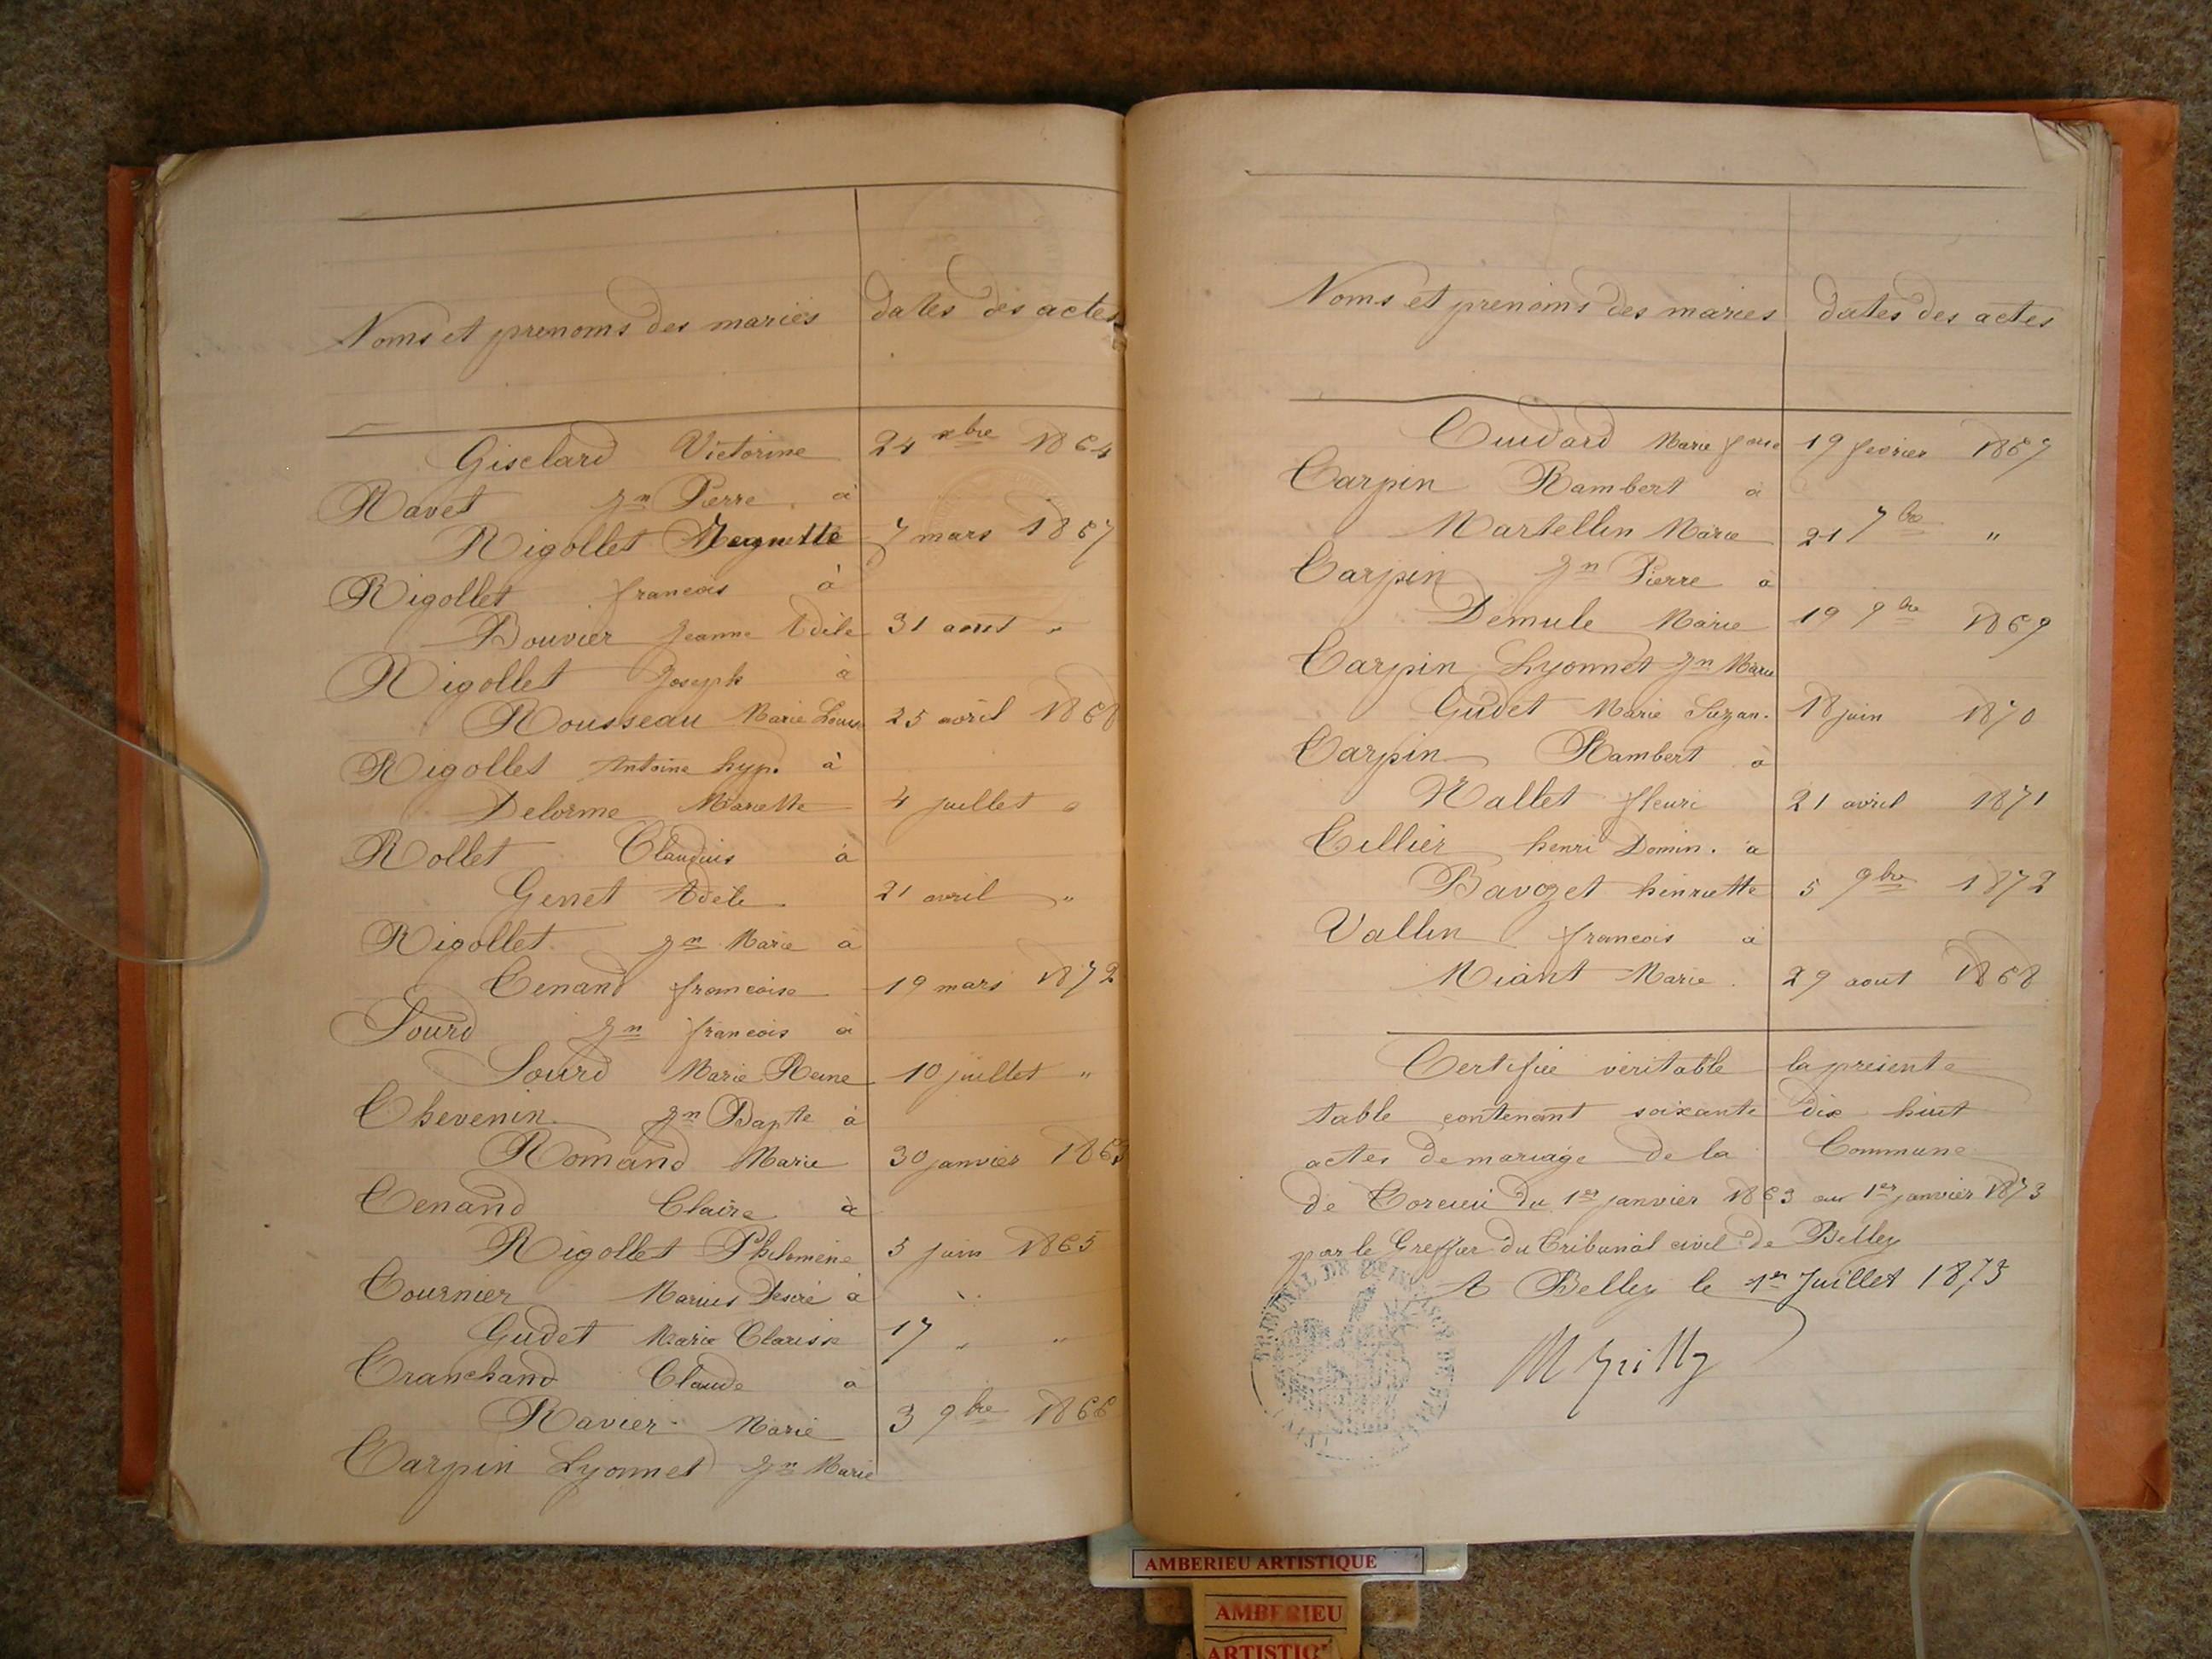 Noms et prenoms des mariés dates des actes
Giselard Victorine 24 xbre 1864
Ravet Jn Pierre à
Rigollet 7 mars 1867
Rigollet francois à
Bouvier Jeanne Adèle 31 aout "
Rigollet Joseph à
Rousseau Marie Louise 25 avril 1868
Rigollet Antoine hyp. à
Delorme Mariette 4 juillet "
Rollet Claudius à
Genet Adèle 21 avril "
Rigollet Jn Marie à
Tenand francoise 19 mars 1872
Sourd Jn francois à
Sourd Marie Reine 10 juillet "
Thevenin Jn Bapte à
Romand Marie 30 janvier 1863
Tenand Claire à
Rigollet Philomène 5 juin 1865
Tournier Marius Desiré à
Gudet Marie Clarisse 17 " "
Tranchand Claude à
Ravier Marie 3 9bre 1866
Tarpin Lyonnet Jn Marie
Noms et prenoms des maries dates des actes
Cuidard Marie 19 fevrier 1867
Tarpin Rambert à
Martellin Marie 21 7bre "
Tarpin Jn Pierre à
Demule Marie 19 9bre 1869
Tarpin Lyonnet Jn Marie
Gudet Marie Suzan. 18 juin 1870
Tarpin Rambert à
Nallet fleuri 21 avril 1871
Tillier henri Domin. a
Bavozet henriette 5 9bre 1872
Vallin francois à
Niant Marie 29 aout 1868
Certifiée véritable la présente
table contenant soixante dix huit
actes de mariage de la Commune
de Torcieu du 1er janvier 1863 au 1er janvier 1873
par le Greffier du Tribunal civil de Belley
A Belley le 1er Juillet 1873
TRIBUNAL DE
AMBERIEU ARTISTIQUE
AMBERIEU